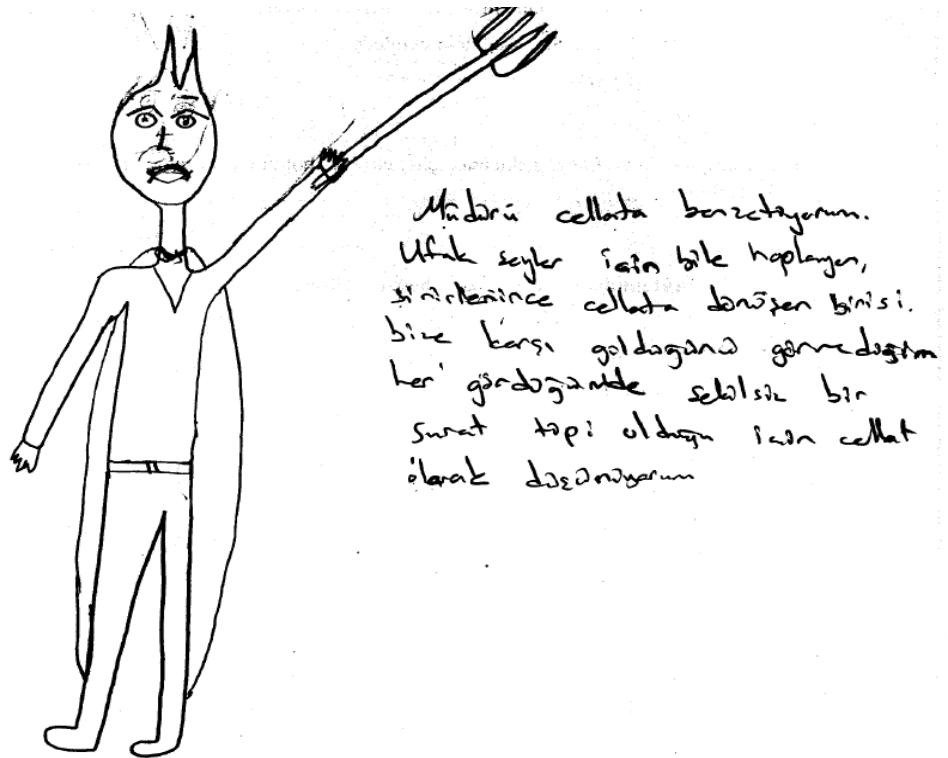 Müdürü cellata benzetiyorum.
Ufak şeyler için bile hoplayan,
sinirlenince cellata dönüşen birisi.
bize karşı güldüğünü görmedigim
her gördüğümde sekilsiz bir
surat tipi olduğu için cellat
olarak düşünüyorum